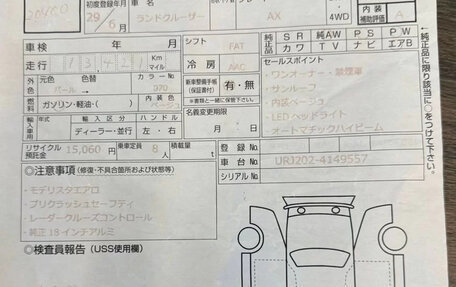 初度登録年月 車名 ランドクルーザー AX 4WD 内装補助評価 A
29年 6月
車検 年 月 シフト FAT 純正品 SR 純AW PS PW
カワ TV ナビ エアB
走行 13,421 Km マイル 冷房 AAC セールスポイント
外色 元色 色替 カラーNo. パール 070 新車整備手帳(保証書付) 有・無 ・ワンオーナー 禁煙車
※書類と一緒に保管して下さい。 ・サンルーフ
燃料 ガソリン・軽油・( ) 内装色 ベージュ 名義変更期限 ・内装ベージュ
輸入車用 年式 輸入区分 ハンドル 月 日 ・LEDヘッドライト
ディーラー・並行 左・右 ・オートマチックハイビーム
リサイクル預託金 15,060円 乗車定員 8人 積載量 t 登録No.
車台No. URJ202-4149557
◎注意事項(修復・不具合箇所および状態等) シリアルNo.
・モデリスタエアロ
・プリクラッシュセーフティ
・レーダークルーズコントロール
・純正18インチアルミ
◎検査員報告(USS使用欄)
←純正品に限り該当に○をつけて下さい。